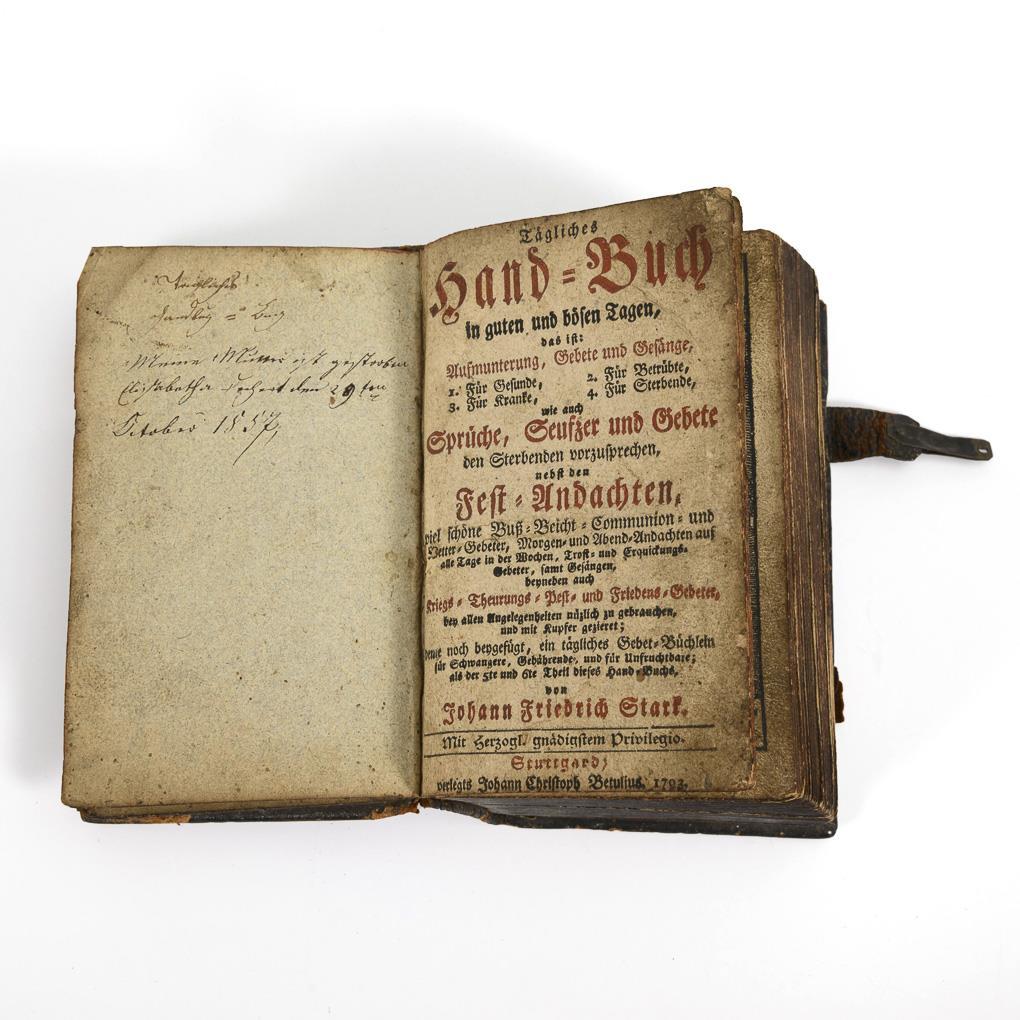 Tägliches
Handbuch = Buch
Meine Mutter ist gestorben
Elisabetha den 29ten
October 1857,
Tägliches
Hand-Buch
in guten und bösen Tagen,
das ist:
Aufmunterung, Gebete und Gesänge,
1. Für Gesunde, 2. Für Betrübte,
3. Für Kranke, 4. Für Sterbende,
wie auch
Sprüche, Seufzer und Gebete
den Sterbenden vorzusprechen,
nebst den
Fest-Andachten,
viel schöne Buß-Beicht-Communion- und
Wetter-Gebeter, Morgen- und Abend-Andachten auf
alle Tage in der Wochen, Trost- und Erquickungs-
Gebeter, samt Gesängen,
beyneben auch
Kriegs- Theurungs- Pest- und Friedens-Gebeter,
bey allen Angelegenheiten nüzlich zu gebrauchen,
und mit Kupfer gezieret;
deme noch beygefügt, ein tägliches Gebet-Büchlein
für Schwangere, Gebährende, und für Unfruchtbare;
als der 5te und 6te Theil dieses Hand-Buchs,
von
Johann Friedrich Stark.
Mit Herzogl. gnädigstem Privilegio.
Stuttgard,
verlegts Johann Christoph Betulius. 1793.